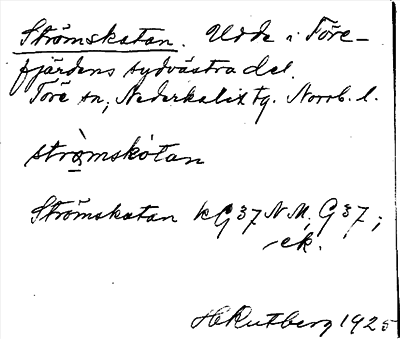 Strömskatan. Udde i Töre-
fjärdens sydvästra del.
Töre sn, Nederkalix tg. Norrb. l.
strò̲mskótan
Strömskatan kG37NM, G37;
ek.
H Rutberg 1925